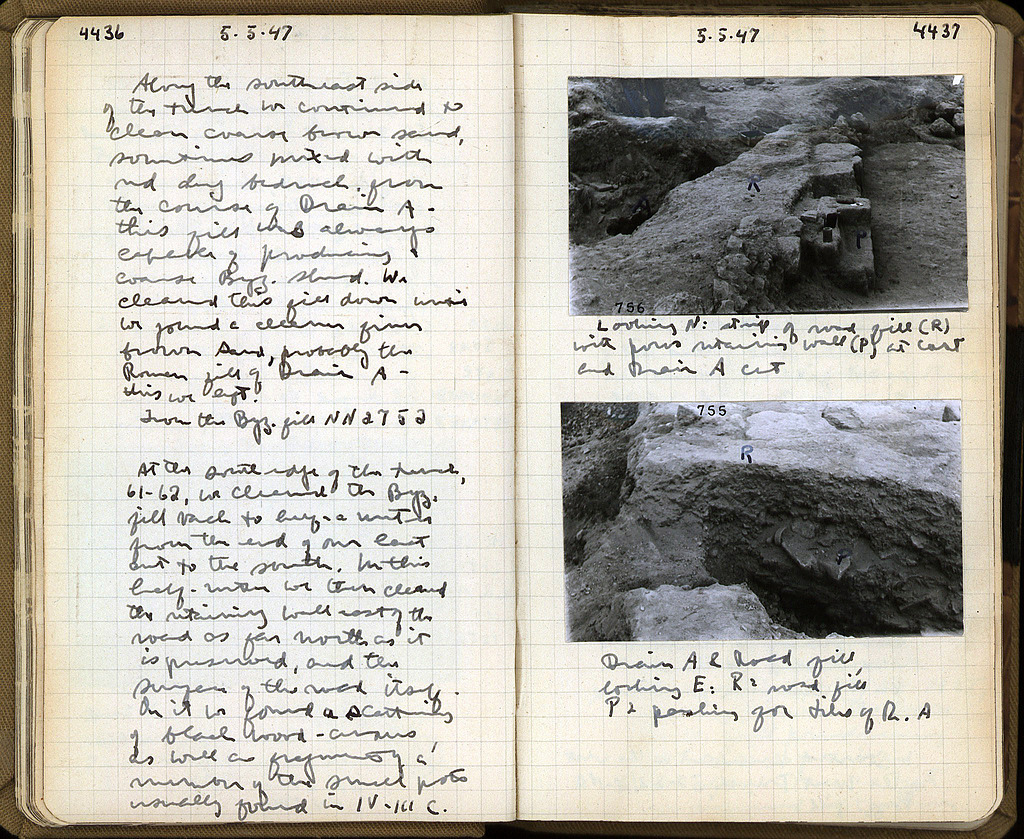 4436
5.5.47
Along the southeast side
of the trench we continued to
clean coarse brown sand,
sometimes mixed with
red dug bedrock, from
the course of Drain A -
this fill was always
capable of producing a
coarse Byz. sherd. We
cleared this fill down until
we found a cleaner finer
brown sand, probably the
Roman fill of Drain A -
this we left.
From the Byz. fill NN 2752
At the south edge of the trench,
61-62, we cleared the Byz.
fill back to half-a meter
from the end of our last
cut to the south. In this
half-meter we then cleared
the retaining wall east of the
road as far north as it
is preserved, and the
surface of the road itself.
On it we found a scattering
of black wood-
as well as fragments of a
number of the small pots
usually found in IV-III C.
5.5.47
4437
R
A
P
756
Looking N: strip of road fill (R)
with poros retaining wall (P) at East
and Drain A cut
755
R
P
Drain A & Road fill,
looking E: R = road fill
P = packing for tiles of Dr. A